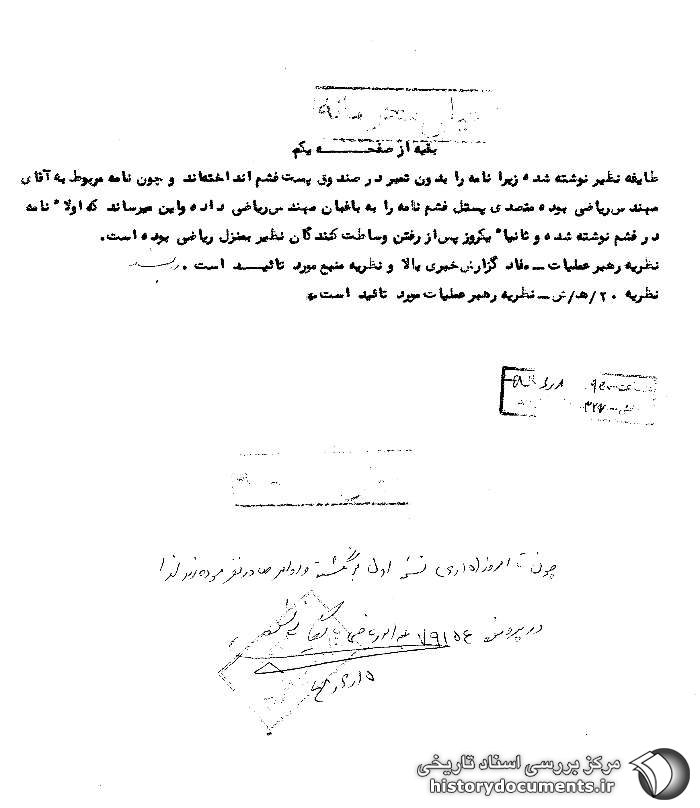 خیلی محرمانه
بقیه از صفحه یکم
طایفه نظیر نوشته شده زیرا نامه را بدون تمبر در صندوق پست فشم انداخته‌اند و چون نامه مربوط به آقای
مهندس ریاضی بوده متصدی پستل فشم نامه را به باغبان مهندس ریاضی داده و این میرساند که اولا" نامه
در فشم نوشته شده و ثانیا" یکروز پس از رفتن وساطت کنندگان نظیر بمنزل ریاضی بوده است.
نظریه رهبر عملیات ـ مفاد گزارش خبری بالا و نظریه منبع مورد تائید است.
نظریه ۲۰/ه‍/ش ـ نظریه رهبر عملیات مورد تائید است.
چون تا امروز اداری نسخه اول برنگشته و اوامر صادر نفرموده‌اند لذا
در پرونده
مرکز بررسی اسناد تاریخی
historydocuments.ir